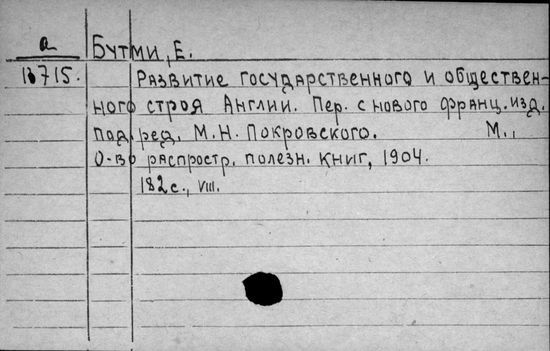 а Бутми, Е.
В715. Развитие государственного и обществен-
ного строя Англии. Пер. с нового франц. изд.
под ред. М.Н. Покровского. М.,
О-во распростр. полезн. книг, 1904.
182 с., VIII.